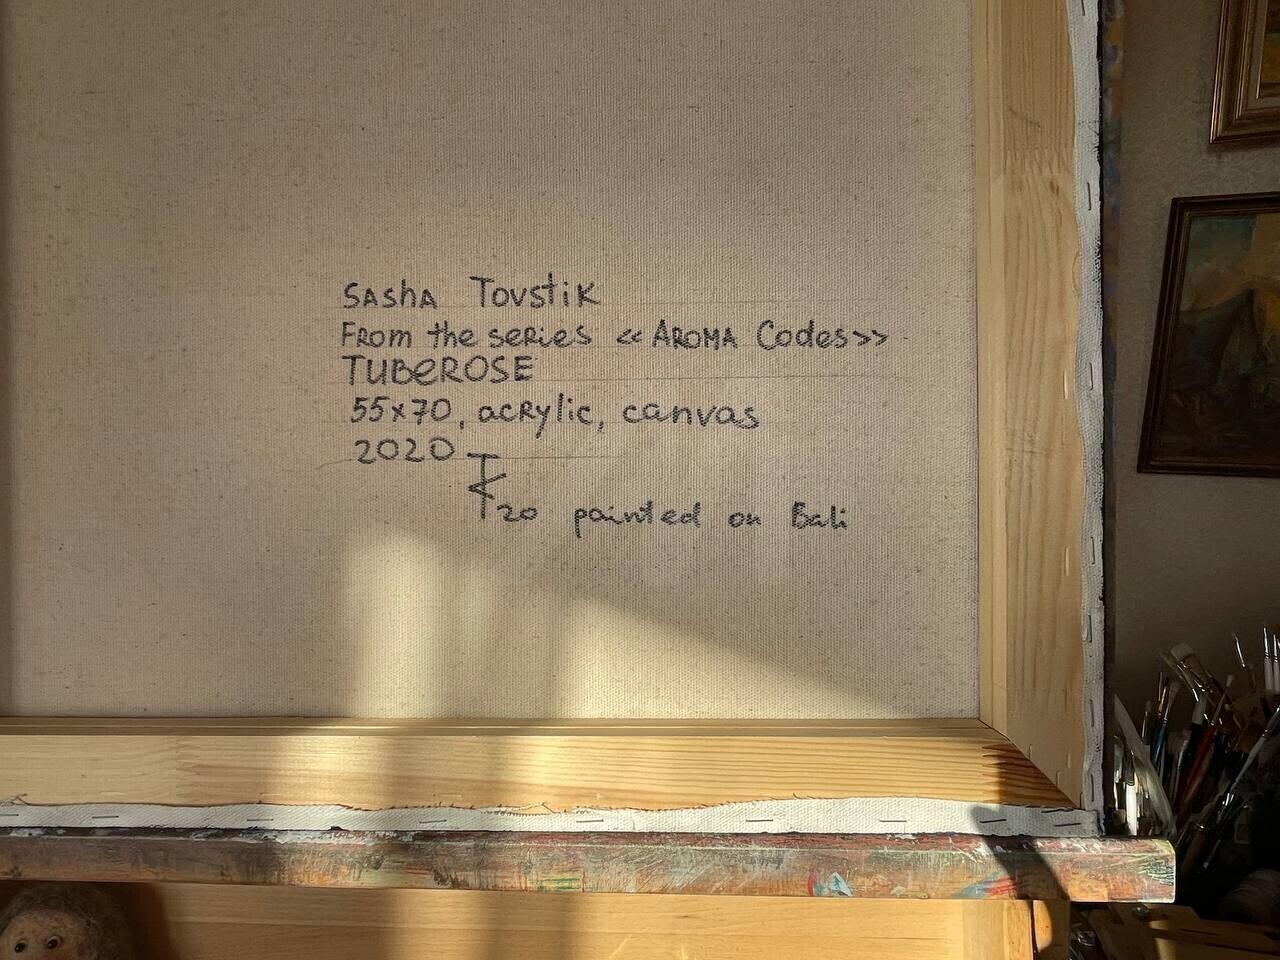 Sasha Tovstik
From the series «Aroma Codes»
TUBEROSE
55x70, acrylic, canvas
2020
20 painted on Bali